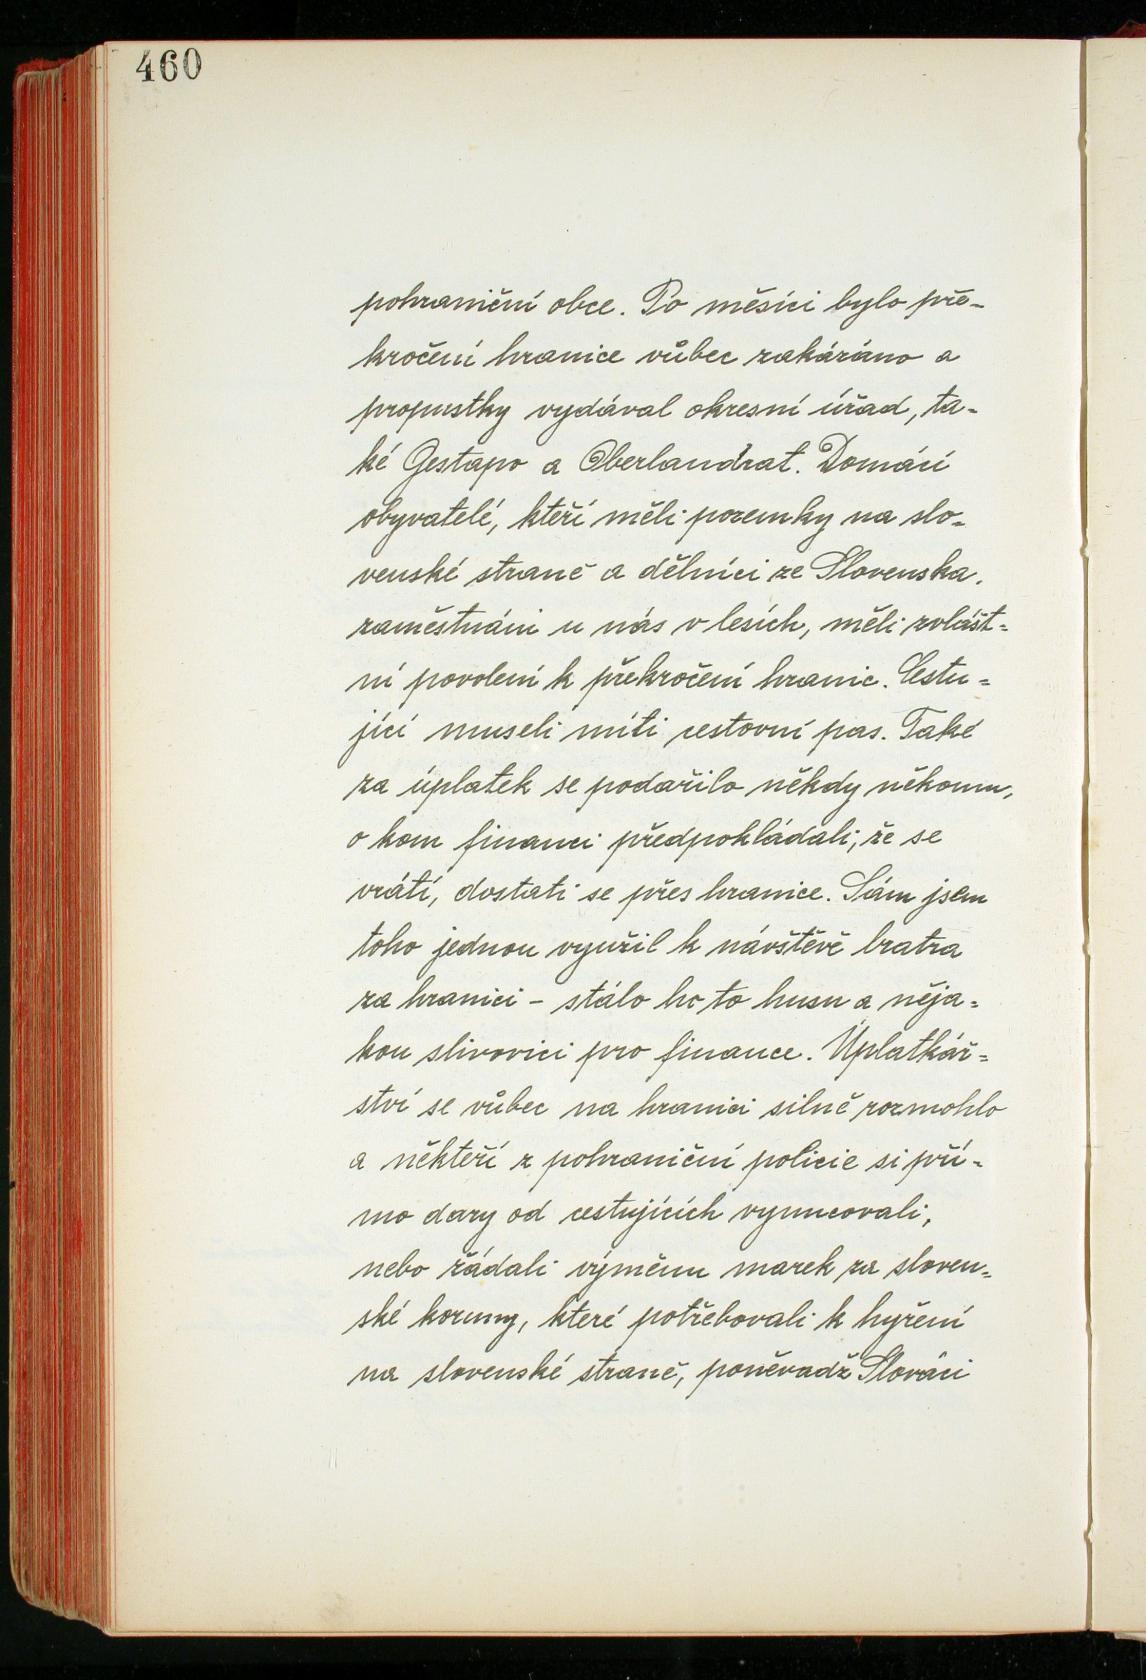 460
pohraniční obce. Po měsíci bylo pře-
kročení hranice vůbec zakázáno a
propustky vydával okresní úřad, ta-
ké Gestapo a Oberlandrat. Domácí
obyvatelé, kteří měli pozemky na slo-
venské straně a dělníci ze Slovenska,
zaměstnáni u nás v lesích, měli zvlášt-
ní povolení k překročení hranic. Cestu-
jící museli míti cestovní pas. Také
za úplatek se podařilo někdy někomu,
o kom financi předpokládali, že se
vrátí, dostati se přes hranice. Sám jsem
toho jednou využil k návštěvě bratra
za hranici – stálo ho to husu a něja-
kou slivovici pro finance. Úplatkář-
ství se vůbec na hranici silně rozmohlo
a někteří z pohraniční policie si pří-
mo dary od cestujících vynucovali,
nebo žádali výměnu marek za sloven-
ské koruny, které potřebovali k hýření
na slovenské straně, poněvadž Slováci